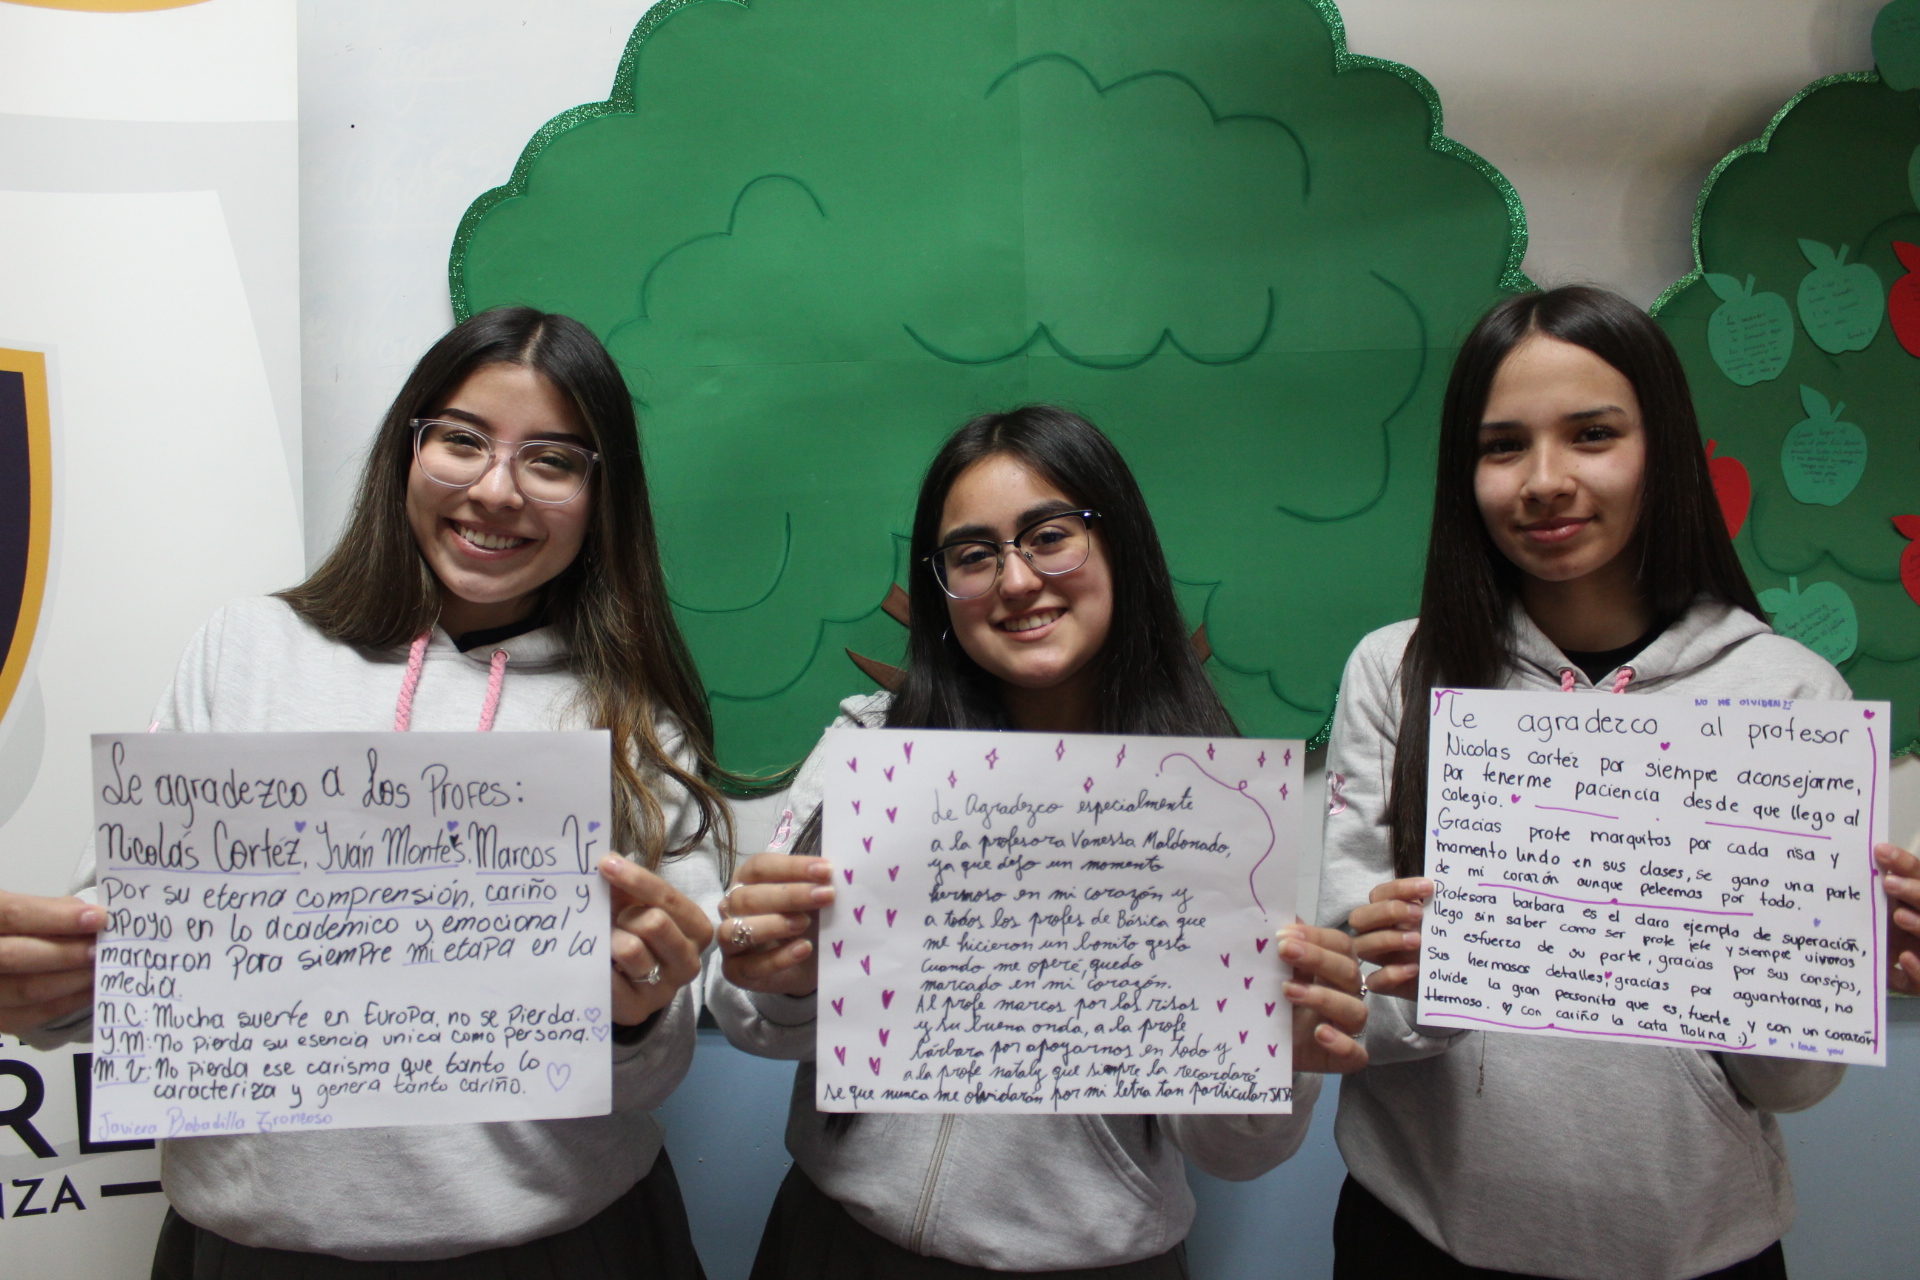 Le agradezco a los Profes:
Nicolás Cortéz, Yván Montes, Marcos V.
por su eterna comprensión, cariño y
apoyo en lo académico y emocional
marcaron para siempre mi etapa en la
media.
N.C.: Mucha suerte en Europa, no se pierda.
Y.M: No pierda su esencia unica como persona.
M.V.: No pierda ese carisma que tanto lo
caracteriza y genera tanto cariño.
Javiera Bobadilla
Le Agradezco especialmente
a la profesora Vanessa Maldonado,
ya que dejo un momento
hermoso en mi corazón y
a todos los profes de Básica que
me hicieron un bonito gesto
cuando me operé, quedo
marcado en mi corazón.
Al profe marcos por las risas
y su buena onda, a la profe
bárbara por apoyarnos en todo y
a la profe nataly que siempre la recordaré
se que nunca me olvidarán por mi letra tan particular JAJA
NO ME OLVIDEN
Le agradezco al profesor
Nicolas cortéz por siempre aconsejarme,
por tenerme paciencia desde que llego al
colegio.
Gracias profe marquitos por cada risa y
momento lindo en sus clases, se gano una parte
de mi corazón aunque peleemos por todo.
Profesora barbara es el claro ejemplo de superación,
llego sin saber como ser profe jefe y siempre vivimos
un esfuerzo de su parte, gracias por sus consejos,
Sus hermosos detalles, gracias por aguantarnos, no
olvide la gran personita que es, fuerte y con un corazón
Hermoso. con cariño la cata Molina :)
I love you
RE
NZA